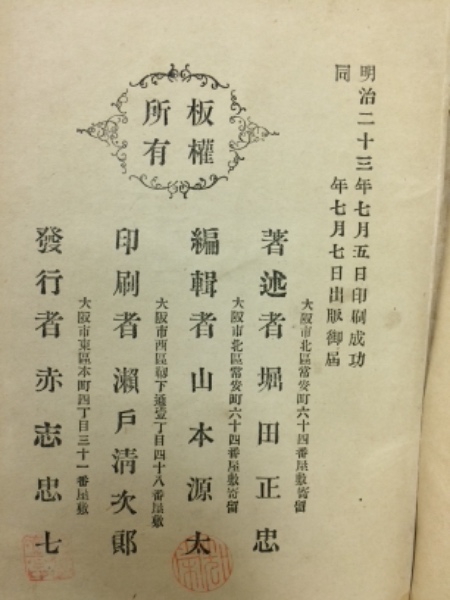 明治二十三年七月五日印刷成功
同年七月七日出版御届
板權
所有
大阪市北區常安町六十四番屋敷寄留
著述者堀田正忠
大阪市北區常安町六十四番屋敷寄留
編輯者山本源太
大阪市西區靱下通壹丁目四十八番屋敷
印刷者瀬戸清次郎
大阪市東區本町四丁目三十一番屋敷
發行者赤志忠七